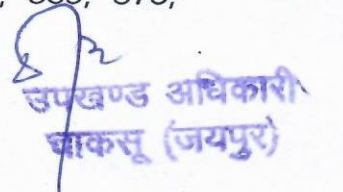 375,
उपखण्ड अधिकारी
चाकसू (जयपुर)